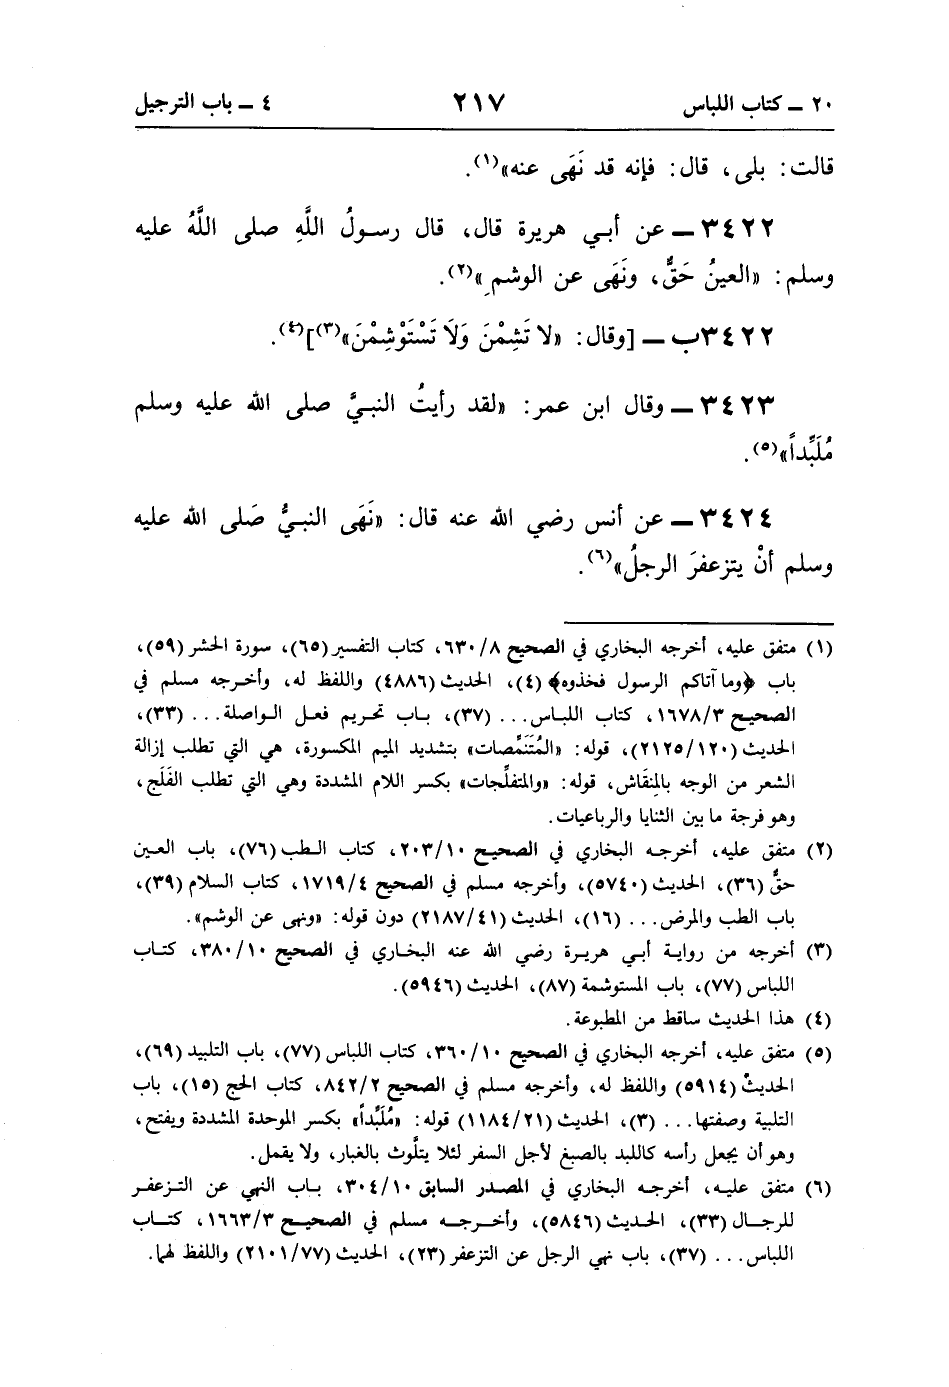 ٢٠ ــ كتاب اللباس ٢١٧ ٤ ــ باب الترجيل
قالت: بلى، قال: فإنه قد نَهَى عنه»(١).
٣٤٢٢ ــ عن أبي هريرة قال، قال رسولُ اللَّهِ صلى اللَّهُ عليه
وسلم: «العينُ حَقٌّ، ونَهَى عن الوشمِ»(٢).
٣٤٢٢ب ــ [وقال: «لا تَشِمْنَ وَلَا تَسْتَوْشِمْنَ»(٣)](٤).
٣٤٢٣ ــ وقال ابن عمر: «لقد رأيتُ النبيَّ صلى الله عليه وسلم
مُلَبِّداً»(٥).
٣٤٢٤ ــ عن أنس رضي الله عنه قال: «نَهَى النبيُّ صَلى الله عليه
وسلم أنْ يتزعفرَ الرجلُ»(٦).
(١) متفق عليه، أخرجه البخاري في الصحيح ٦٣٠/٨، كتاب التفسير (٦٥)، سورة الحشر (٥٩)،
باب ﴿وما آتاكم الرسول فخذوه﴾ (٤)، الحديث (٤٨٨٦) واللفظ له، وأخرجه مسلم في
الصحيح ١٦٧٨/٣، كتاب اللباس... (٣٧)، باب تحريم فعل الواصلة... (٣٣)،
الحديث (٢١٢٥/١٢٠)، قوله: «المُتَنَمِّصات» بتشديد الميم المكسورة، هي التي تطلب إزالة
الشعر من الوجه بالمِنقَاش، قوله: «والمتفلِّجات» بكسر اللام المشددة وهي التي تطلب الفَلَج،
وهو فرجة ما بين الثنايا والرباعيات.
(٢) متفق عليه، أخرجه البخاري في الصحيح ٢٠٣/١٠، كتاب الطب (٧٦)، باب العين
حقٌّ (٣٦)، الحديث (٥٧٤٠)، وأخرجه مسلم في الصحيح ١٧١٩/٤، كتاب السلام (٣٩)،
باب الطب والمرض... (١٦)، الحديث (٢١٨٧/٤١) دون قوله: «ونهى عن الوشم».
(٣) أخرجه من رواية أبي هريرة رضي الله عنه البخاري في الصحيح ٣٨٠/١٠، كتاب
اللباس (٧٧)، باب المستوشمة (٨٧)، الحديث (٥٩٤٦).
(٤) هذا الحديث ساقط من المطبوعة.
(٥) متفق عليه، أخرجه البخاري في الصحيح ٣٦٠/١٠، كتاب اللباس (٧٧)، باب التلبيد (٦٩)،
الحديث (٥٩١٤) واللفظ له، وأخرجه مسلم في الصحيح ٨٤٢/٢، كتاب الحج (١٥)، باب
التلبية وصفتها... (٣)، الحديث (١١٨٤/٢١) قوله: «مُلَبِّداً» بكسر الموحدة المشددة ويفتح،
وهو أن يجعل رأسه كاللبد بالصبغ لأجل السفر لئلا يتلَّوث بالغبار، ولا يقمل.
(٦) متفق عليه، أخرجه البخاري في المصدر السابق ٣٠٤/١٠، باب النهي عن التزعفر
للرجال (٣٣)، الحديث (٥٨٤٦)، وأخرجه مسلم في الصحيح ١٦٦٣/٣، كتاب
اللباس... (٣٧)، باب نهي الرجل عن التزعفر (٢٣)، الحديث (٢١٠١/٧٧) واللفظ لهما.